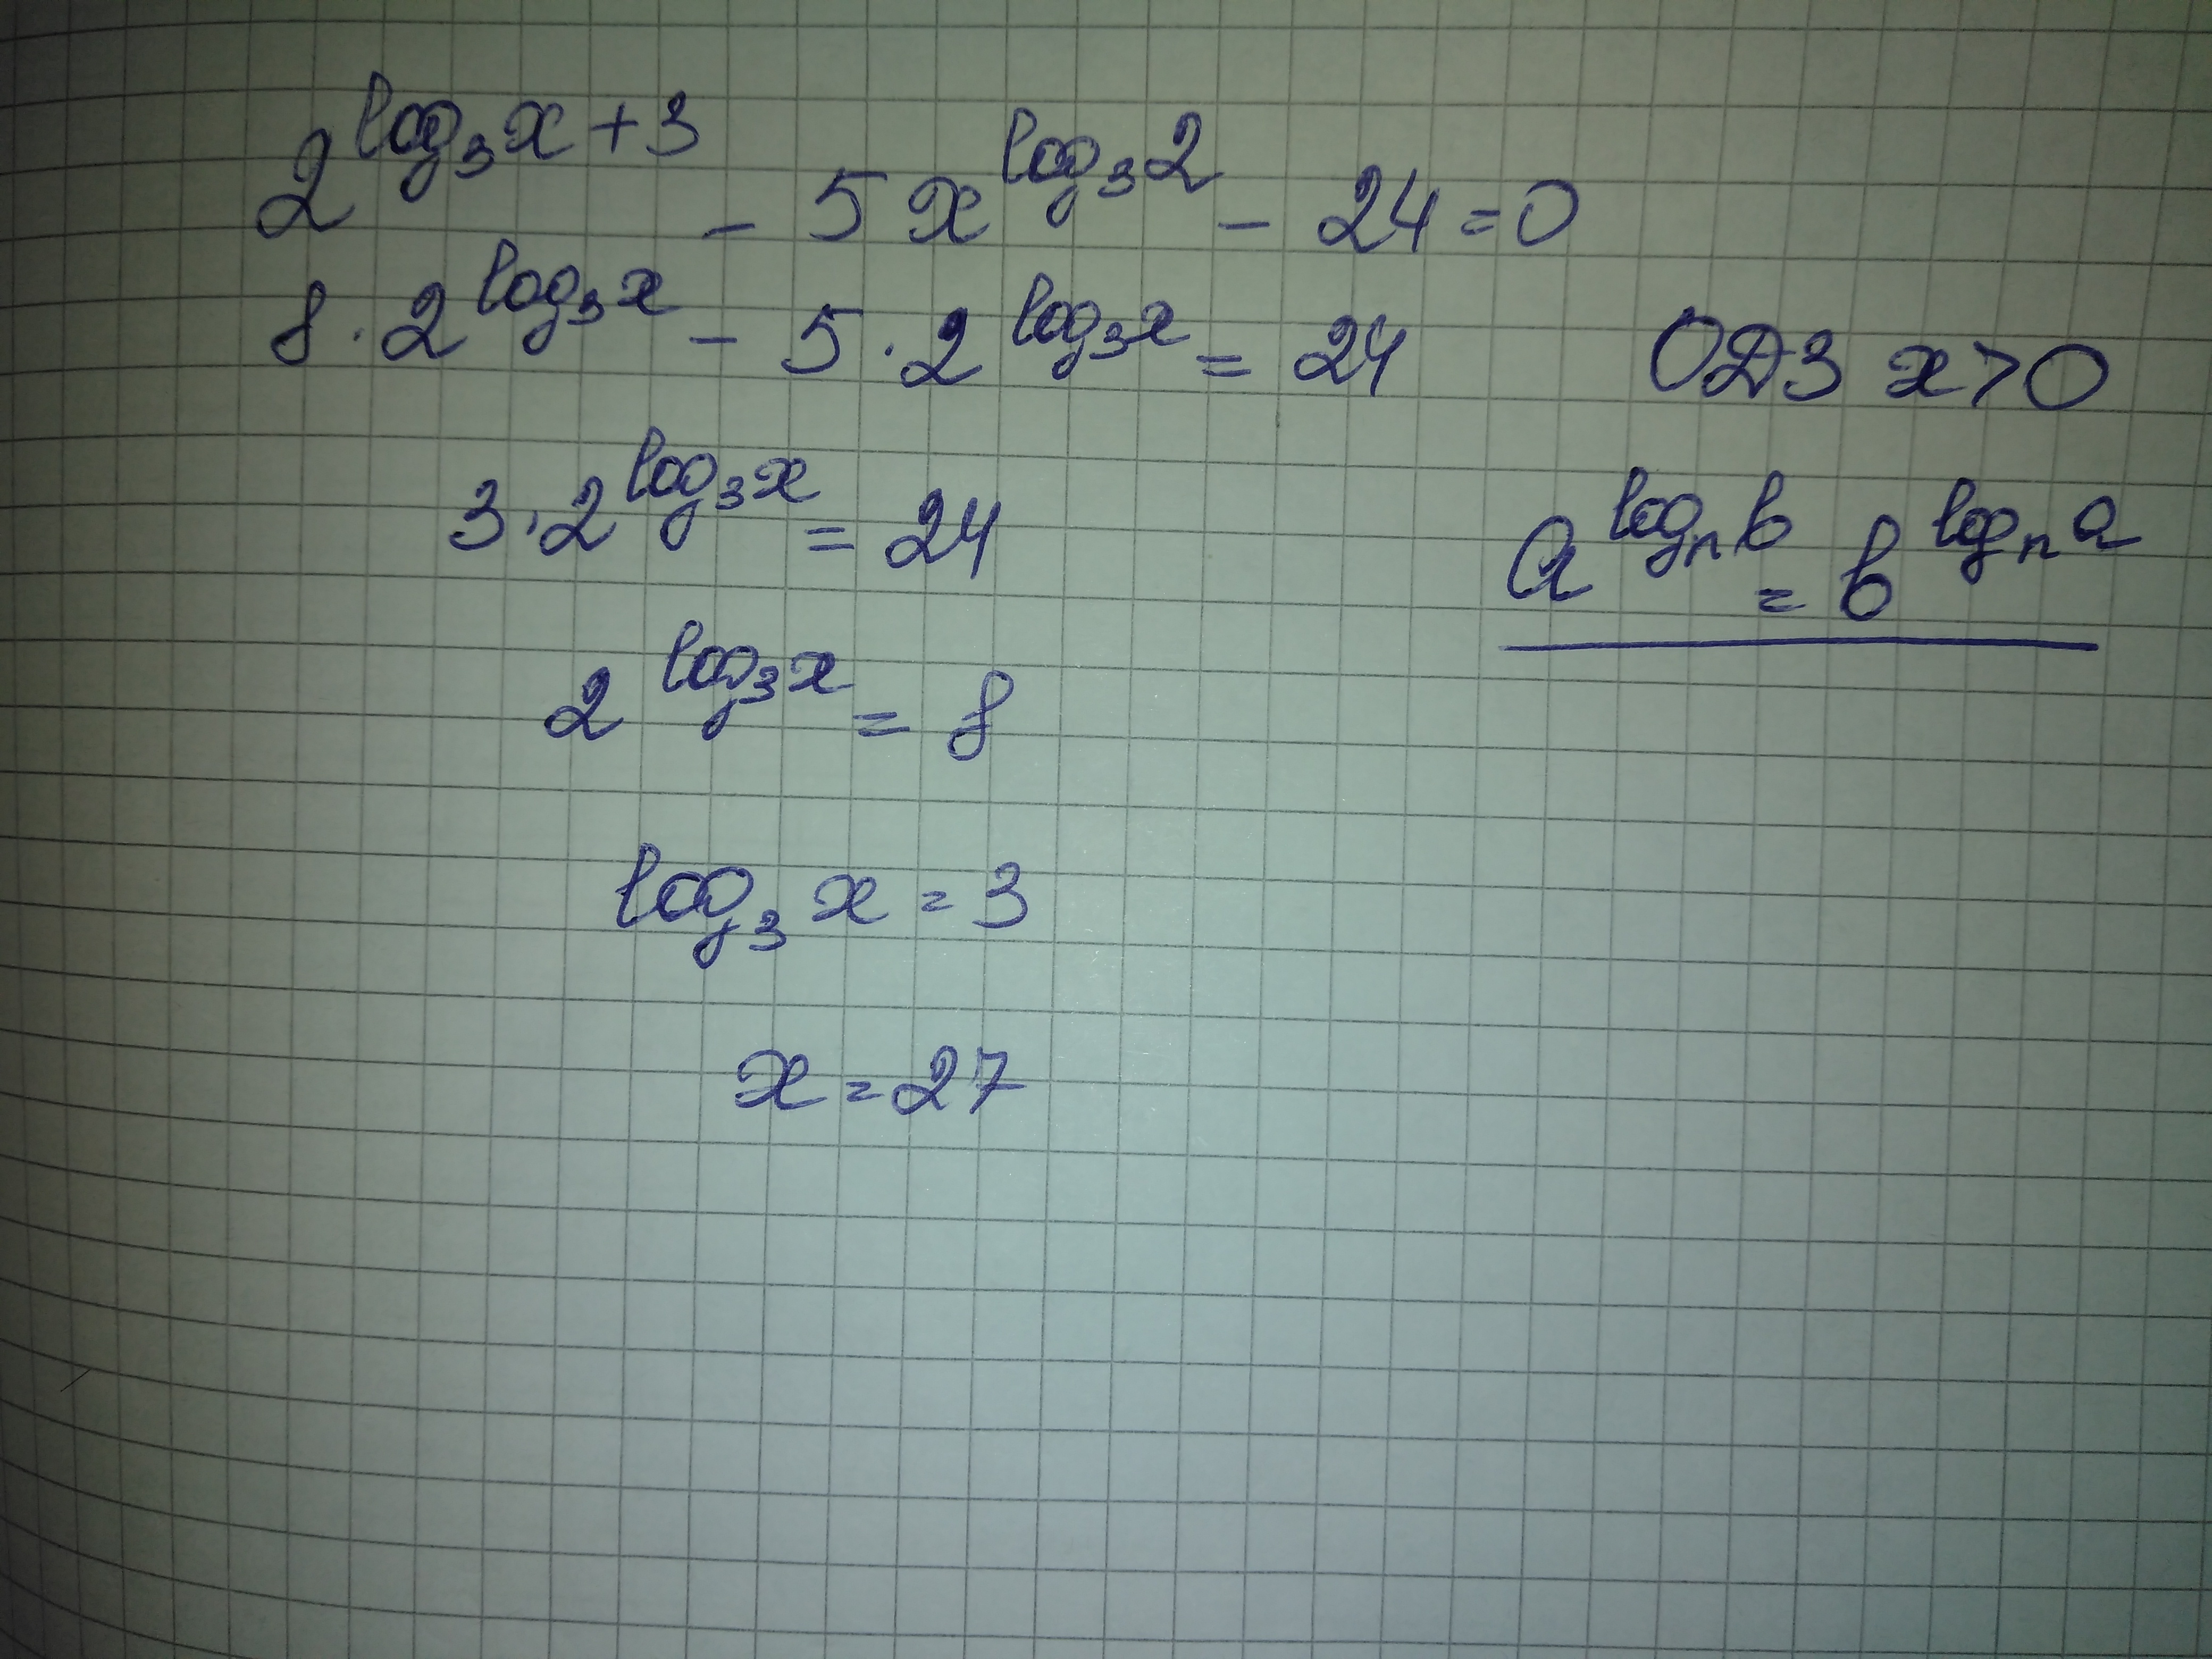 2^{log_3 x + 3} - 5x^{log_3 2} - 24 = 0
8 · 2^{log_3 x} - 5 · 2^{log_3 x} = 24
ОДЗ x > 0
3 · 2^{log_3 x} = 24
a^{log_n b} = b^{log_n a}
2^{log_3 x} = 8
log_3 x = 3
x = 27